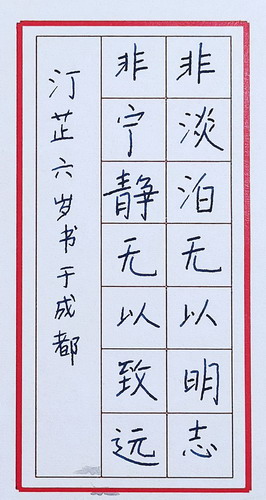 非淡泊无以明志
非宁静无以致远
汀芷六岁书于成都